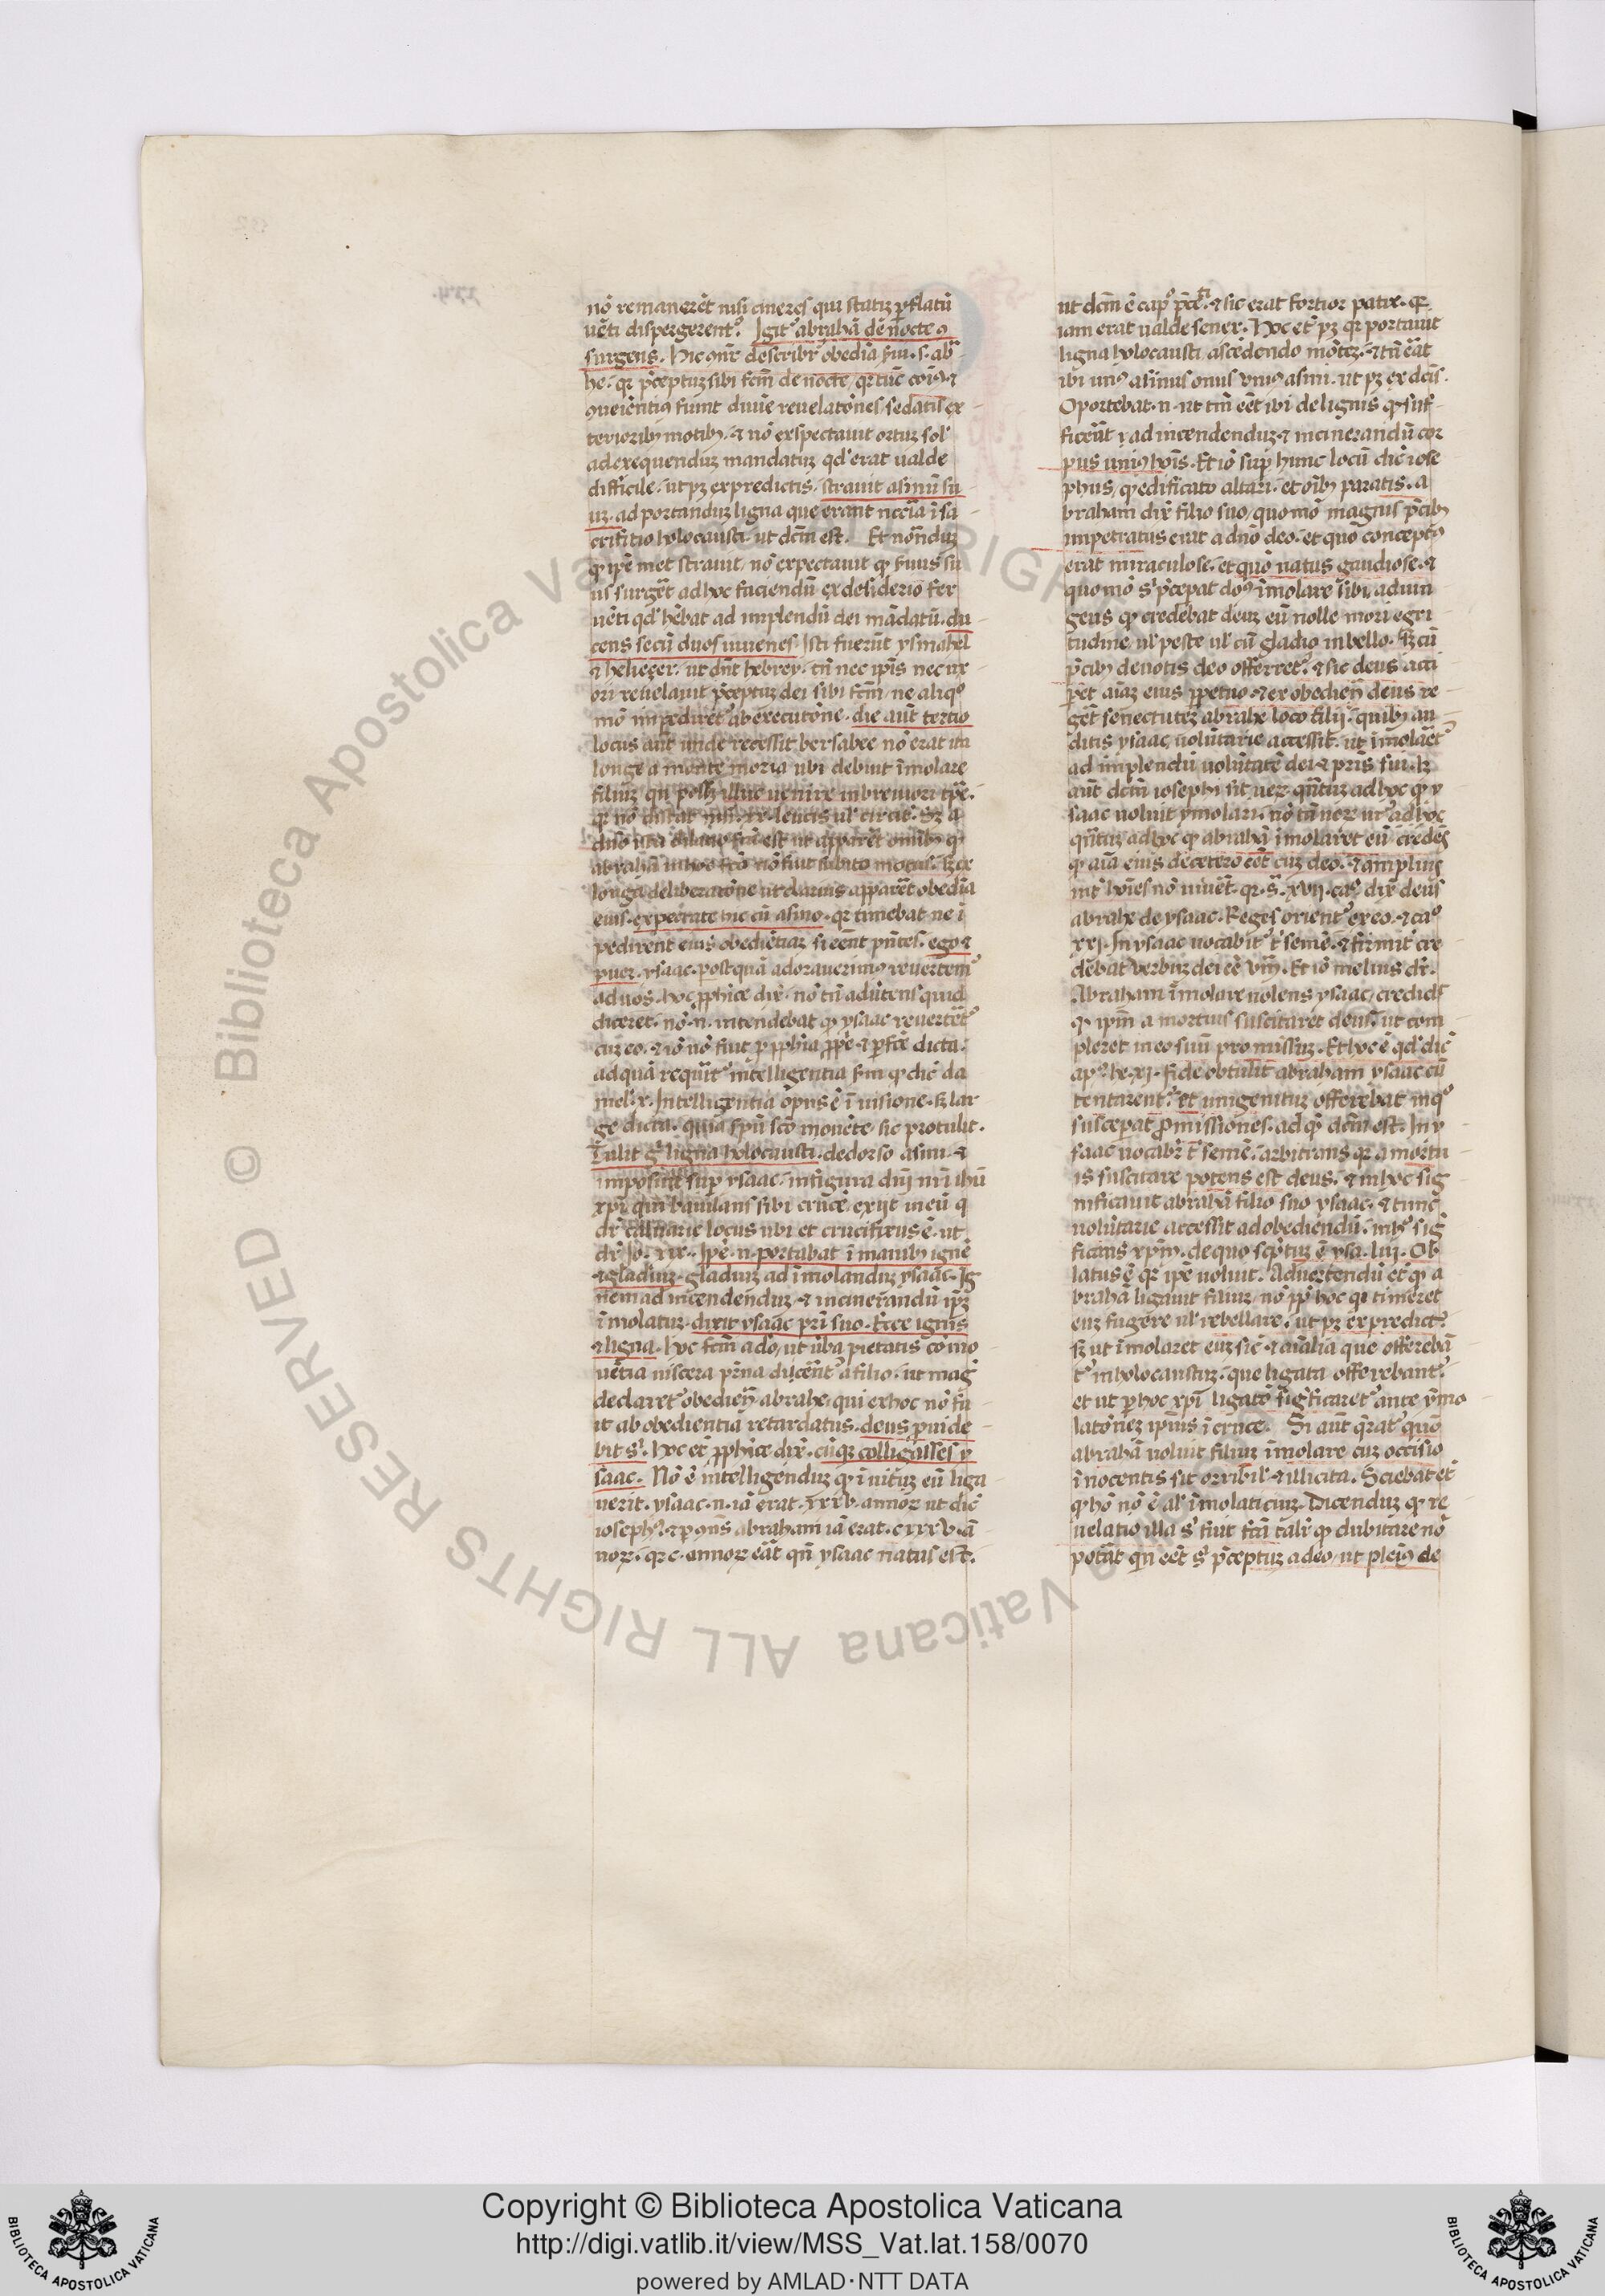 nō remanerēt nisi cineres qui statiʒ ꝑ flatū
uēti dispergerentʳ. Igitʳ abrahā de nocte ꝯ
surgens. Hic ꝯñr describr̄ obedīa .s. ab̄
he. qr p̄ceptuʒ sibi fcm̄ de nocte, qr tūc
terioribʒ motibʒ. ⁊ nō exspectauit ortuʒ sol'
ad exequenduʒ mandatuʒ qd' erat ualde
difficile. ut pʒ ex predictis. strauit asinū su
uʒ. ad portanduʒ ligna que erant nccīa ī sa
crifitio holocausti. ut dcm̄ est. Et notāduʒ
ꝙ ip̄e met strauit, nō expectauit ꝙ suus
us surgēt ad hoc faciendū ex desiderio fer
uēti qd' hēbat ad implendū dei mādatū. du
cens secū duos iuuenes. Isti fuerūt ysmahel
⁊ heliezer. ut dn̄t hebrey. tn̄ nec ip̄is nec ux
ori reuelauit p̄ceptuʒ dei sibi fcm̄. ne aliqº
mō impedirētʳ ab executōne. die aūt tertio
locus aūt unde recessit bersabee nō erat ita
longe a monte moria ubi debuit īmolare
filiuʒ qn̄ poss̄ illuc uenire in breuiori tp̄e.
abrahā in hoc fcō nō fuit subito motus. sʒ ex
longa deliberatōne ut clarius apparēt obedīa
eius. expectate hic cū asino. qr timebat ne ī
pedirent eius obediētiaʒ si eēnt pn̄tes. ego ⁊
puer. ysaac. postquā adorauerimꝰ reuertemʳ
ad uos. hoc ꝓphice dix̄. nō tn̄ aduētens quid
diceret. nō .n. intendebat ꝙ ysaac reuertetʳ
cuʒ eo. ⁊ iō nō fuit ꝓphīa ꝓpe ⁊ ꝑfcē dicta.
ad quā requirtʳ intelligentia sm̄ ꝙ dic̄ da
niel .x. Intelligentia ōpus ē ī uisione. sʒ lar
ge dicta. quia spū scō mouēte sic protulit.
Tulit gͥ ligna holocausti. de dorso asini. ⁊
imposuit sup ysaac. in figura dn̄i nr̄i ihū
xp̄i qui baiulans sibi crucē exijt in eū q
dr̄ caluarie locus ubi et crucifixus ē. ut
dr̄ Io. xix. Ip̄e .n. portabat ī manibʒ ignē
⁊ gladiuʒ. gladiuʒ ad īmolanduʒ ysaac. Ig
nem ad incendenduʒ ⁊ incinerandū ip̄ʒ
īmolatuʒ. dixit ysaac pr̄i suo. Ecce ignis
⁊ ligna. hoc fcm̄ a dō, ut ūba pietatis comō
uētia uiscera pr̄na ducērtʳ a filio. ut maḡ
declaretʳ obedien̄ abrahe. qui ex hoc nō fu
it ab obedientia retardatus. deus ꝓuide
bit sͥ. hoc et ꝓphice dix̄. cūqʒ colligasses y
saac. Nō ē intelligenduʒ ꝙ īuituʒ eū liga
uerit. ysaac .n. iā erat .xxxv. annorʒ ut dic̄
iosephꝰ. ⁊ ꝑ ꝯn̄s abraham iā erat .cxxxv. ā
norʒ. qr .c. annorʒ eāt qn̄ ysaac natus est.
ut dcm̄ ē capº p̄ce. ⁊ sic erat fortior patre. qr
iam erat ualde senex. Hoc et pʒ qr portauit
ligna holocausti ascēdendo mōteʒ. ⁊ tn̄ eāt
ibi uniꝰ asinus onus uniꝰ asini. ut pʒ ex dcis.
Oportebat .n. ut tm̄ eēt ibi de lignis ꝙ suf
ficeāt ad incendenduʒ ⁊ incinerandū cor
pus uniꝰ hoīs. Et iō sup hunc locū dic̄ iose
phus, ꝙ edificato altari. et oībʒ paratis. a
braham dix̄ filio suo, quomō magnis p̄cibʒ
impetratus erat a dn̄o deo. et quō conceptꝰ
erat miraculose. et quō natus gaudiose. ⁊
quomō sͥ p̄cepat dn̄s īmolare sibi, adiun
gens ꝙ credebat deuʒ eū nolle mori egri
tudine, ul' peste ul' cū gladio in bello. sʒ cū
p̄cibʒ deuotis deo offerretʳ. ⁊ sic deus acci
pet aīaʒ eius ꝑpetuo. ⁊ ex obedien̄ deus re
get senectuteʒ abrahe loco filij. quibʒ au
ditis ysaac uolūtarie accessit. ut īmolaetʳ
ad implendū uolūtatē dei ⁊ pr̄is sui. lʒ
aūt dcm̄ iosephi sit ueʒ qn̄tuʒ ad hoc ꝙ y
saac uoluit ymolari. nō tn̄ uere ut ad hoc
qn̄tuʒ ad hoc ꝙ abrahā īmolaret eū credēs
ꝙ aīa eius decetero eēt cuʒ deo. ⁊ amplius
int̄ hoīes nō uiuēt. qr .s̄. xvij. caº dix̄ deus
abrahe de ysaac. Reges orientʳ ex eo. ⁊ caº
xxj. In ysaac uocabitʳ tͥ semē. ⁊ firmit̄ cre
debat uerbuʒ dei eē ūm̄. Et iō melius dr̄.
Abraham īmolare uolens ysaac, credidͭ
ꝙ ip̄m a mortuis suscitaret deus. ut com
pleret in eo suū promissuʒ. Et hoc ē qd' dic̄
apº. he. xj. fide obtulit abraham ysaac cū
tentarentʳ. et unigenituʒ offerebat in qº
suscepat ꝓmissiones. ad qͥ dcm̄ est. In y
saac uocabr̄ tͥ semē. arbitrans qr a mortu
is suscitare potens est deus. ⁊ in hoc sig
nificauit abrahā filio suo ysaac. ⁊ tunc
uolūtarie accessit ad obediendū. in hͦ siḡ
ficans xp̄m. de quo scp̄tuʒ ē ysa. liij. Ob
latus ē qr ip̄e uoluit. Aduertendū et ꝙ a
brahā ligauit filiuʒ, nō ꝓp hoc qͥ timeret
euʒ fugere ul' rebellare. ut pʒ ex predictʳ.
sʒ ut īmolaret euʒ sic̄ ⁊ aīalia que offerebā
tʳ in holocaustuʒ. que ligata offerebantʳ.
et ut ꝑ hoc xp̄i ligatō sigͥficaretʳ ante ymo
latōneʒ ip̄ius ī cruce. Si aūt q̄ratʳ quō
abrahā uoluit filiuʒ īmolare cuʒ occisio
īnocentis sit orribil' ⁊ illicita. Sciebat et
ꝙ hō nō ē al' īmolaticiuʒ. Dicenduʒ ꝙ re
uelatio illa sͥ fuit fcā talr̄ ꝙ dubitare nō
potāt qn̄ eēt sͥ p̄ceptuʒ a deo, ut pleiꝰ de
Copyright © Biblioteca Apostolica Vaticana
http://digi.vatlib.it/view/MSS_Vat.lat.158/0070
powered by AMLAD·NTT DATA
BIBLIOTECA APOSTOLICA VATICANA
BIBLIOTECA APOSTOLICA VATICANA
© Biblioteca Apostolica Vaticana ALL RIGHTS RESERVED